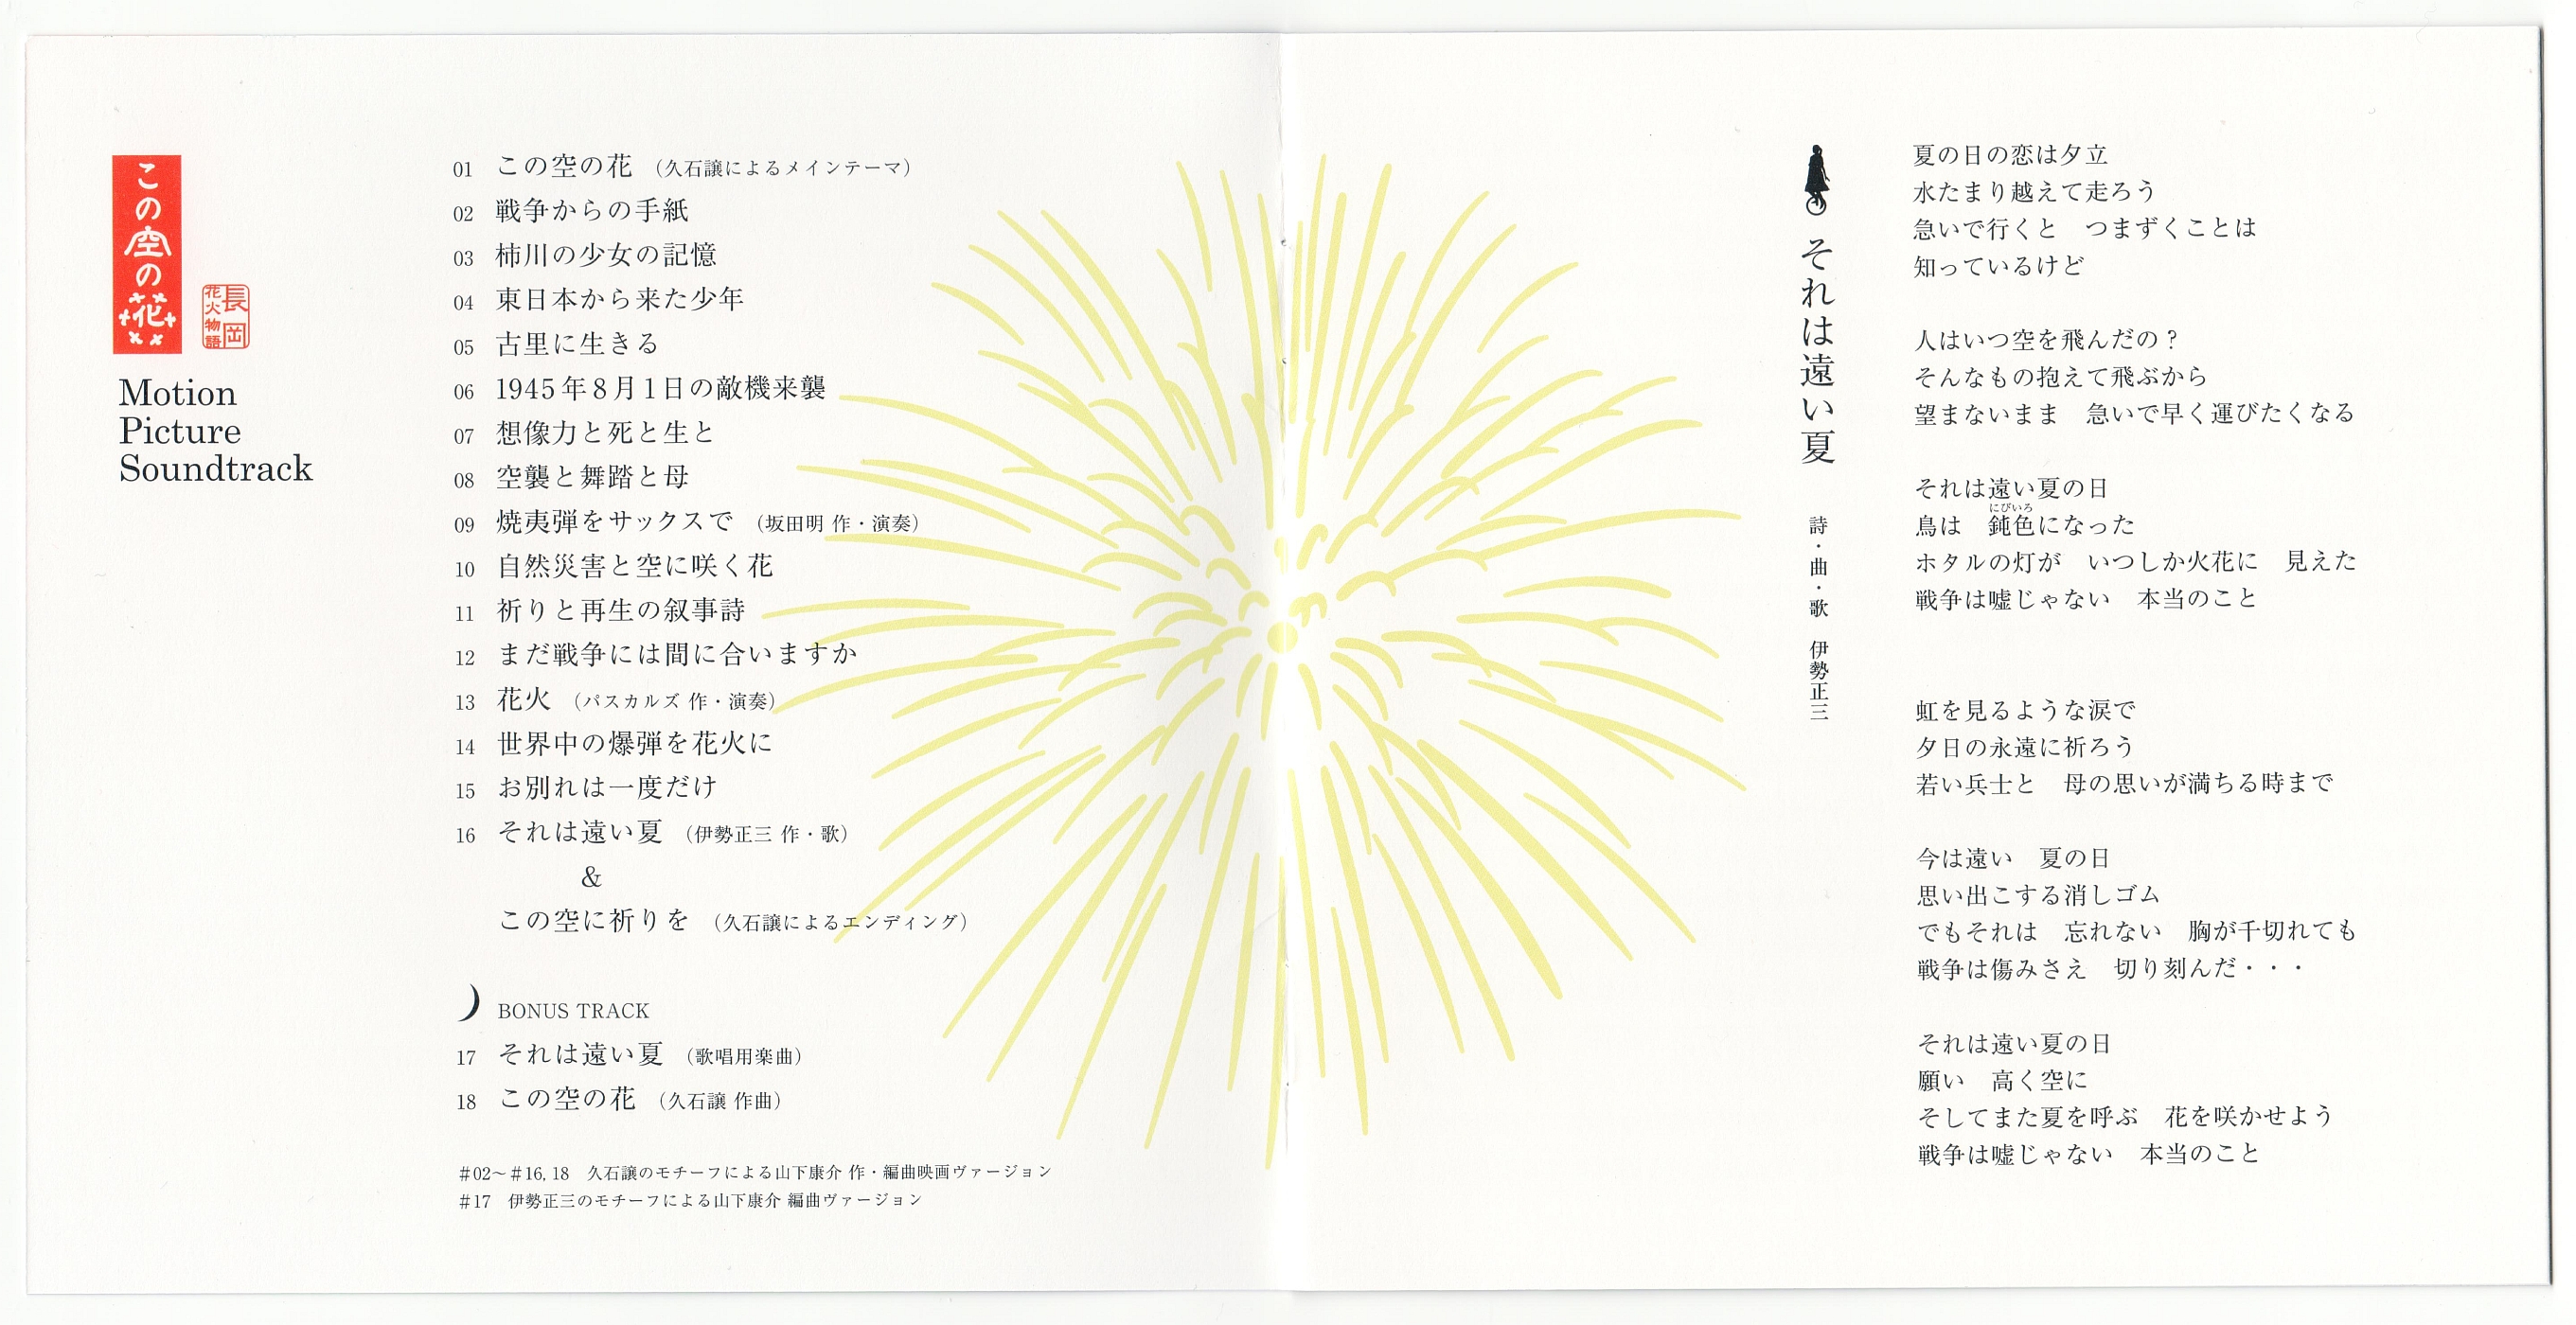 この空の花
長岡
花火物語
Motion
Picture
Soundtrack
01 この空の花 （久石譲によるメインテーマ）
02 戦争からの手紙
03 柿川の少女の記憶
04 東日本から来た少年
05 古里に生きる
06 1945年8月1日の敵機来襲
07 想像力と死と生と
08 空襲と舞踏と母
09 焼夷弾をサックスで （坂田明 作・演奏）
10 自然災害と空に咲く花
11 祈りと再生の叙事詩
12 まだ戦争には間に合いますか
13 花火 （パスカルズ 作・演奏）
14 世界中の爆弾を花火に
15 お別れは一度だけ
16 それは遠い夏 （伊勢正三 作・歌）
&
この空に祈りを （久石譲によるエンディング）
BONUS TRACK
17 それは遠い夏 （歌唱用楽曲）
18 この空の花 （久石譲 作曲）
#02〜#16, 18　久石譲のモチーフによる山下康介 作・編曲映画ヴァージョン
#17　伊勢正三のモチーフによる山下康介 編曲ヴァージョン
それは遠い夏
詩・曲・歌　伊勢正三
夏の日の恋は夕立
水たまり越えて走ろう
急いで行くと　つまずくことは
知っているけど
人はいつ空を飛んだの？
そんなもの抱えて飛ぶから
望まないまま　急いで早く運びたくなる
それは遠い夏の日
にびいろ
鳥は　鈍色になった
ホタルの灯が　いつしか火花に　見えた
戦争は嘘じゃない　本当のこと
虹を見るような涙で
夕日の永遠に祈ろう
若い兵士と　母の思いが満ちる時まで
今は遠い　夏の日
思い出こする消しゴム
でもそれは　忘れない　胸が千切れても
戦争は傷みさえ　切り刻んだ・・・
それは遠い夏の日
願い　高く空に
そしてまた夏を呼ぶ　花を咲かせよう
戦争は嘘じゃない　本当のこと